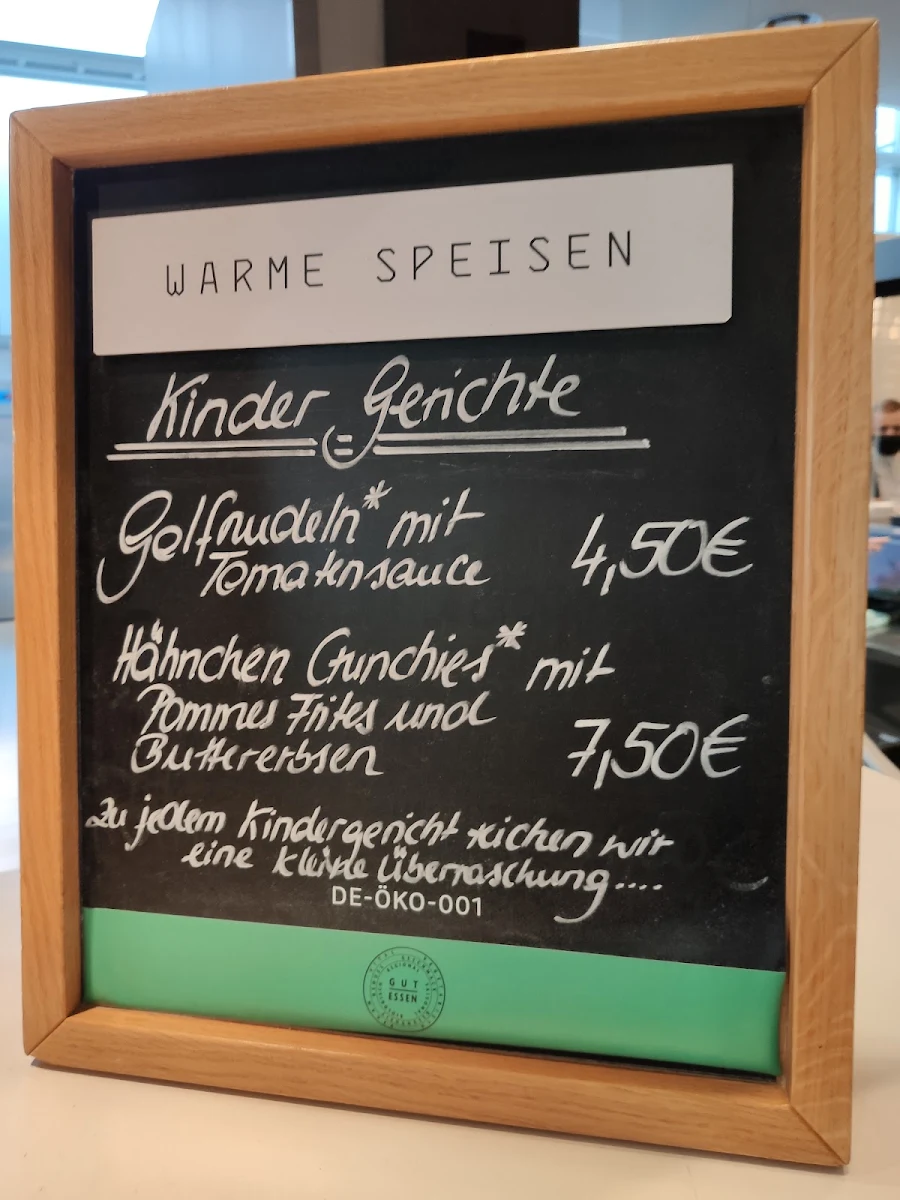 WARME SPEISEN
Kinder Gerichte
Golfnudeln* mit
Tomatensauce 4,50€
Hähnchen Crunchies* mit
Pommes Frites und
Buttererbsen 7,50€
Zu jedem Kindergericht reichen wir
eine kleine Überraschung....
DE-ÖKO-001
GUT
ESSEN